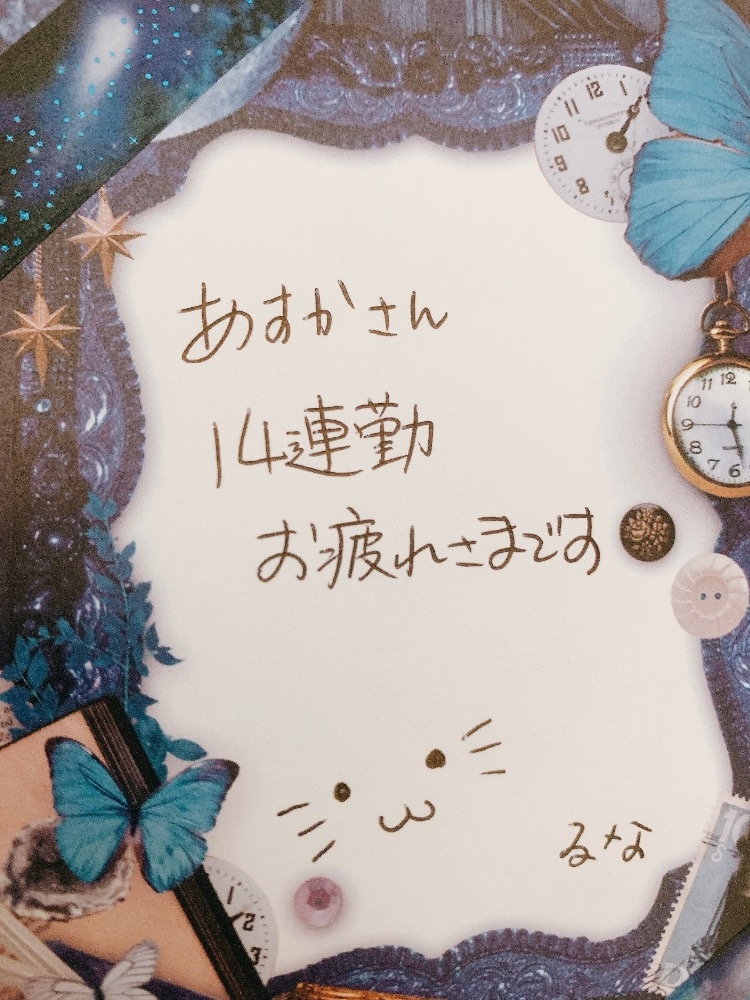 あすかさん
14連勤
お疲れさまです
るな